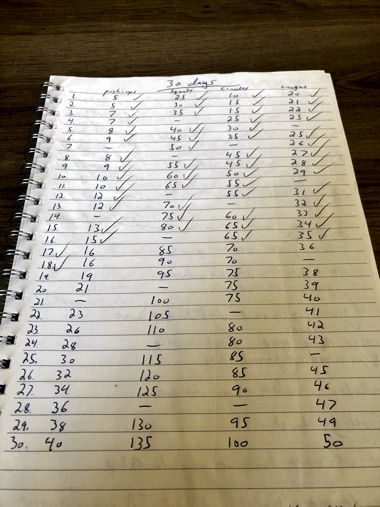 30 days
push-ups squats crunches lunges
1. 5 ✓ 25 ✓ 10 ✓ 20 ✓
2. 5 ✓ 30 ✓ 15 ✓ 21 ✓
3. 7 ✓ 35 ✓ 15 ✓ 22 ✓
4. 7 ✓ — 25 ✓ 23 ✓
5. 8 ✓ 40 ✓ 30 ✓ —
6. 9 ✓ 45 ✓ — 25 ✓
7. — 50 ✓ 26 ✓
8. 8 ✓ — 45 ✓ 27 ✓
9. 9 ✓ 55 ✓ 45 ✓ 28 ✓
10. 10 ✓ 60 ✓ 50 ✓ 29 ✓
11. 10 ✓ 65 ✓ 55 ✓
12. 12 ✓ — 55 ✓ 31 ✓
13. 12 ✓ 70 ✓ — 32 ✓
14. — 75 ✓ 60 ✓ 33 ✓
15 13 ✓ 80 ✓ 65 ✓ 34 ✓
16 15 ✓ — 65 ✓ 35 ✓
17 ✓ 16 85 70 36
18 ✓ 16 90 70 —
19. 19 95 75 38
20. 21 75 39
21. — 100 75 40
22. 23 105 — 41
23. 26 110 80 42
24. 28 — 80 43
25. 30 115 85 —
26. 32 120 85 45
27. 34 125 90 46
28. 36 — — 47
29. 38 130 95 49
30. 40 135 100 50